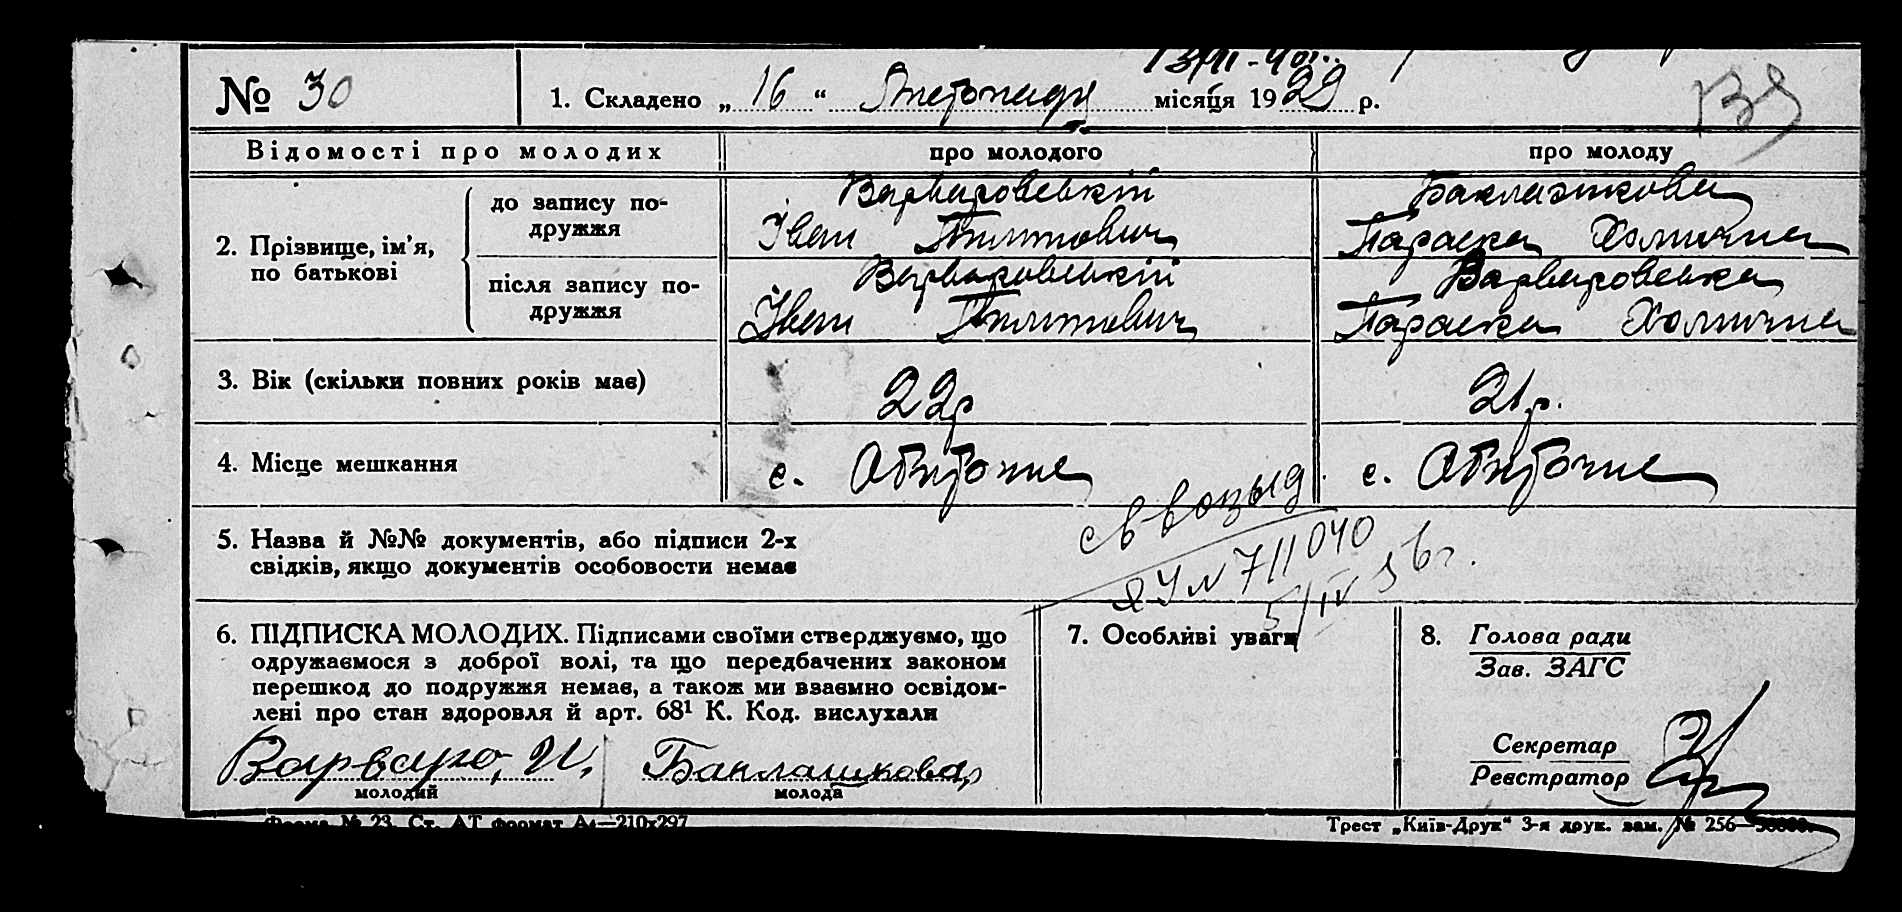 № 30
1. Складено „ 16 “ Листопада місяця 1929 р.
Відомості про молодих
про молодого
про молоду
2. Прізвище, ім’я, по батькові
до запису по-
дружжя
Варваровський
Іван Пилипович
Баклашкова
Параска
після запису по-
дружжя
Варваровський
Іван Пилипович
Варваровська
Параска
3. Вік (скільки повних років має)
22р
21р.
4. Місце мешкання
с. Обиточне
с. Обиточне
5. Назва й №№ документів, або підписи 2-х
свідків, якщо документів особовости немає
ЯУ № 711040
5/IV 36г.
6. ПІДПИСКА МОЛОДИХ. Підписами своїми стверджуємо, що
одружаємося з доброї волі, та що передбачених законом
перешкод до подружжя немає, а також ми взаємно освідом-
лені про стан здоровля й арт. 68¹ К. Код. вислухали
Варваро, И,
молодий
Баклашкова,
молода
7. Особливі уваги
8. Голова ради
Зав. ЗАГС
Секретар
Реєстратор
Форма № 23. Ст. АТ формат А₄—210x297
Трест „Київ-Друк“ 3-я друк. зам. № 256—50000.